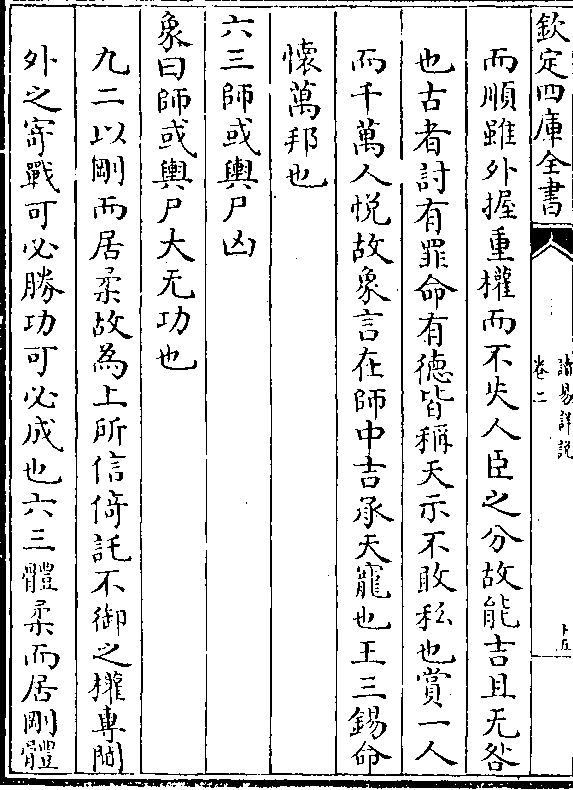 欽定四庫全書
讀易詳說
卷二
而順雖外握重權而不失人臣之分故能吉且无咎
也古者討有罪命有德皆稱天示不敢私也賞一人
而千萬人悅故象言在師中吉承天寵也王三錫命
懷萬邦也
六三師或輿尸凶
象曰師或輿尸大无功也
九二以剛而居柔故為上所信倚託不御之權專閫
外之寄戰可必勝功可必成也六三體柔而居剛體